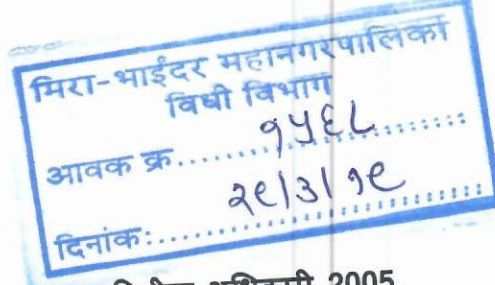 मिरा-भाईंदर महानगरपालिका
विधी विभाग
आवक क्र.......१५६८.........
दिनांक:.......२९/३/१९.........
अधिकारी 2005